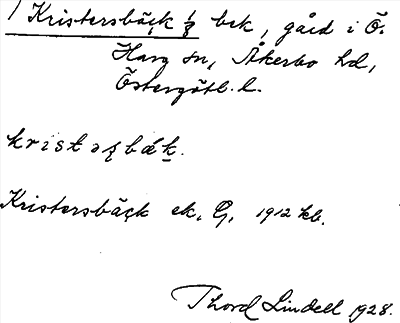 Kristersbäck bek, gård i Ö.
Harg sn, Åkerbo hd,
Östergötl. l.
kristəʂbäk.
Kristersbäck ek. G, 1912 kb.
Thord Lindell 1928.